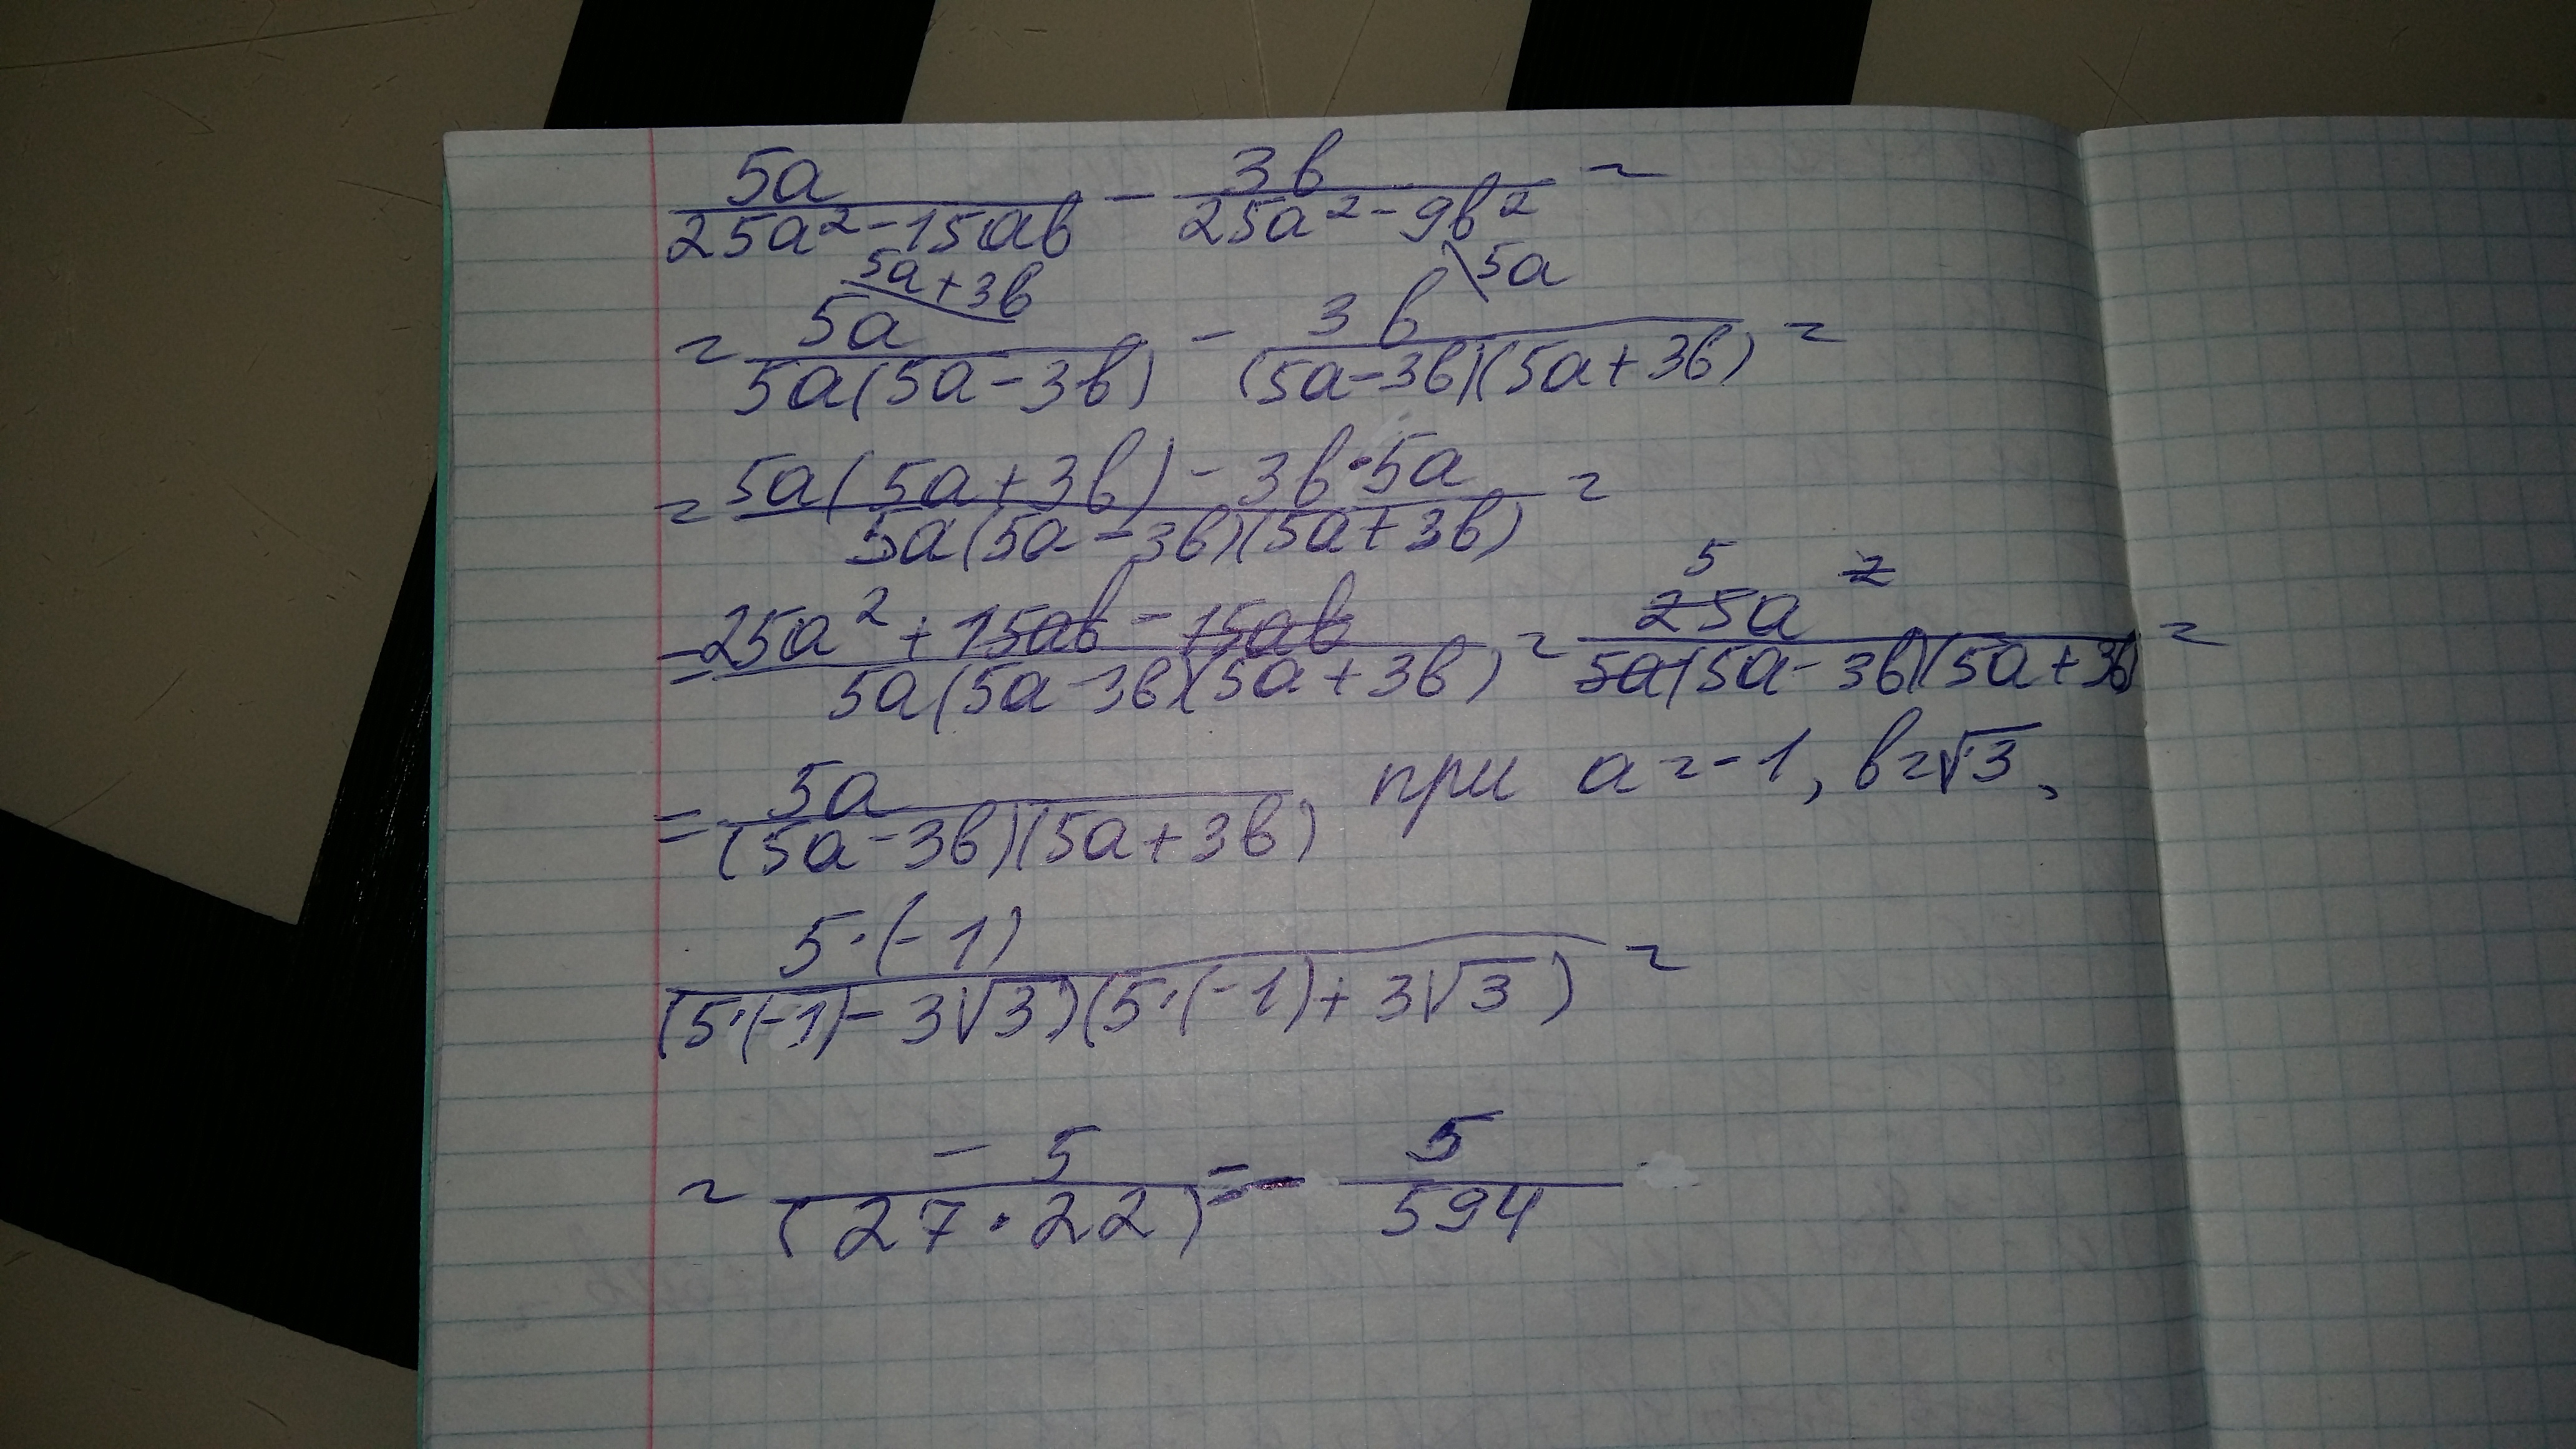 5a/(25a² - 15ab) - 3b/(25a² - 9b²) =
= 5a/(5a(5a - 3b)) \5a+3b - 3b/((5a - 3b)(5a + 3b)) \5a =
= (5a(5a + 3b) - 3b·5a)/(5a(5a - 3b)(5a + 3b)) =
= (25a² + 15ab - 15ab)/(5a(5a - 3b)(5a + 3b)) = 5 25a²/(5a(5a - 3b)(5a + 3b)) =
= 5a/((5a - 3b)(5a + 3b)), при a = -1, b = √3,
5·(-1)/((5·(-1) - 3√3)(5·(-1) + 3√3)) =
= -5/(27·22) = - 5/594